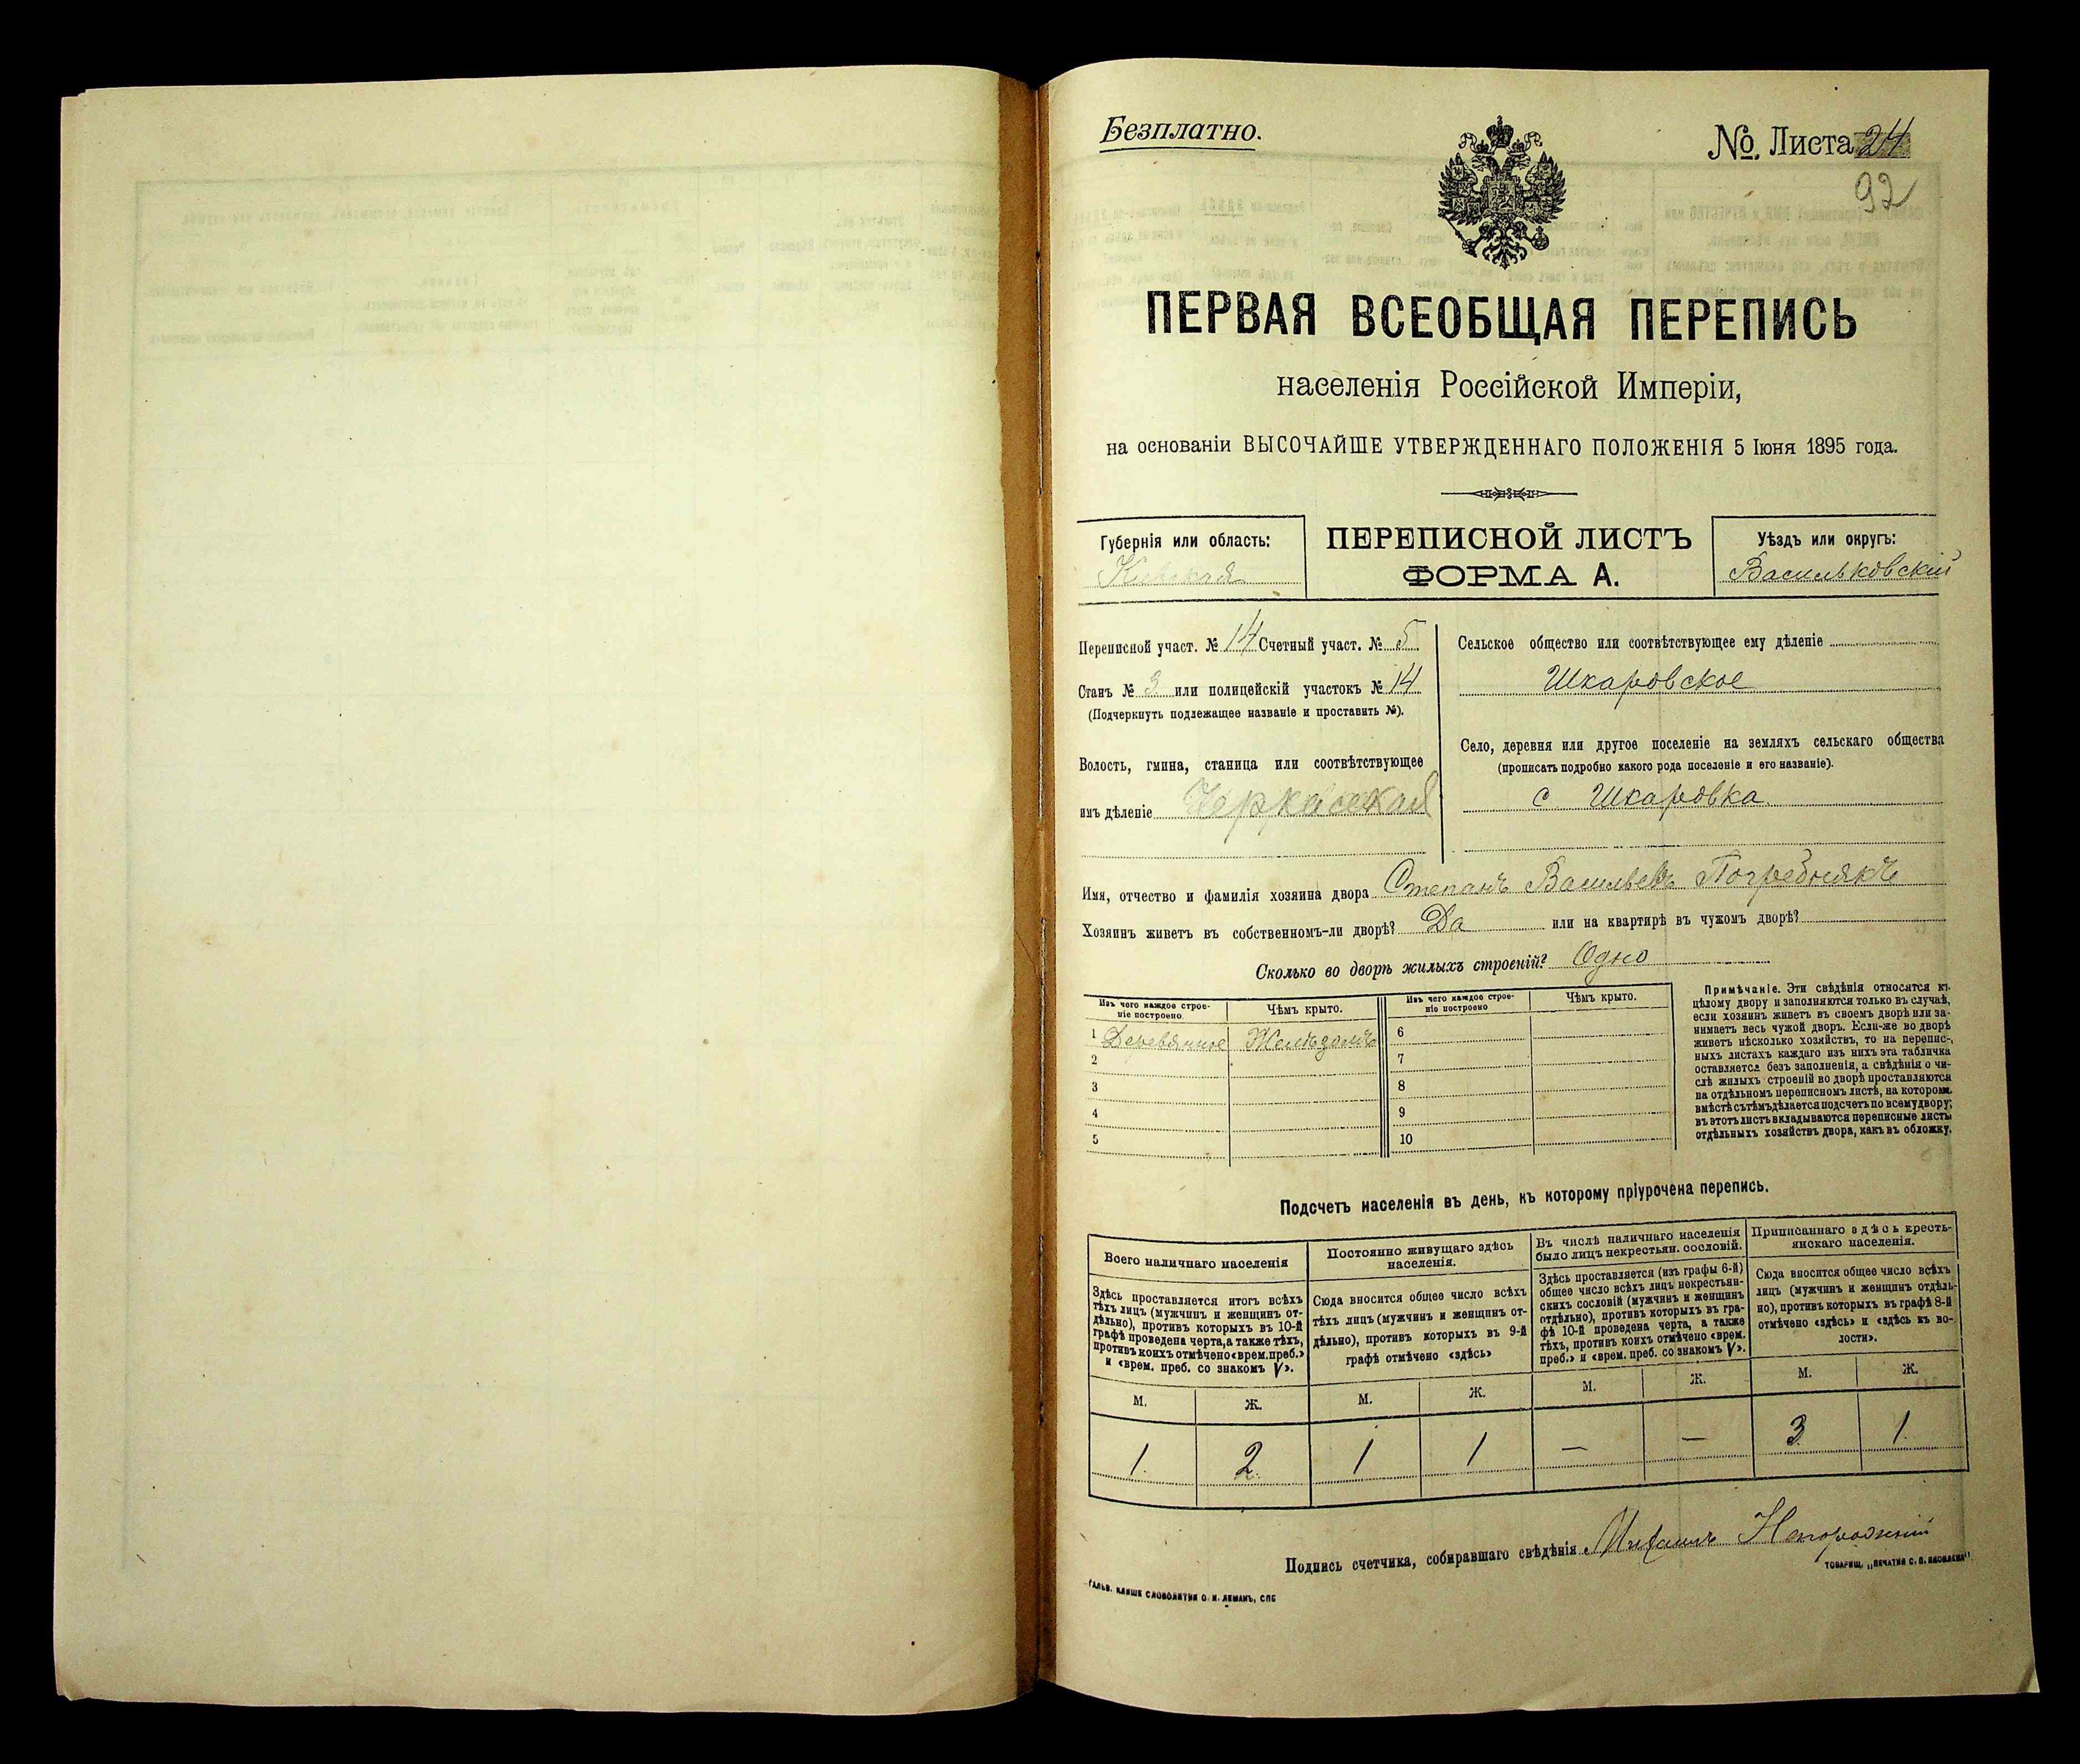 Безплатно.
№ Листа 24
92
ПЕРВАЯ ВСЕОБЩАЯ ПЕРЕПИСЬ
населенія Россійской Имперіи,
на основаніи ВЫСОЧАЙШЕ УТВЕРЖДЕННАГО ПОЛОЖЕНІЯ 5 Іюня 1895 года.
Губернія или область:
Кіевская
ПЕРЕПИСНОЙ ЛИСТЪ
ФОРМА А.
Уѣздъ или округъ:
Васильковскій
Переписной участ. № 14 Счетный участ. № 5
Станъ № 3 или полицейскій участокъ № 14
(Подчеркнуть подлежащее названіе и проставить №).
Волость, гмина, станица или соотвѣтствующее
имъ дѣленіе Черкасская
Сельское общество или соотвѣтствующее ему дѣленіе
Шкаровское
Село, деревня или другое поселеніе на земляхъ сельскаго общества
(прописать подробно какого рода поселеніе и его названіе).
с Шкаровка
Имя, отчество и фамилія хозяина двора Степанъ Васильевъ Погребнякъ
Хозяинъ живетъ въ собственномъ-ли дворѣ? Да или на квартирѣ въ чужомъ дворѣ?
Сколько во дворѣ жилыхъ строеній? Одно
Изъ чего каждое строе-
ніе построено
Чѣмъ крыто.
Изъ чего каждое строе-
ніе построено
Чѣмъ крыто.
1 Деревянное Желѣзомъ 6
2 7
3 8
4 9
5 10
Примѣчаніе. Эти свѣдѣнія относятся къ
цѣлому двору и заполняются только въ случаѣ,
если хозяинъ живетъ въ своемъ дворѣ или за-
нимаетъ весь чужой дворъ. Если-же во дворѣ
живетъ нѣсколько хозяйствъ, то на перепис-
ныхъ листахъ каждаго изъ нихъ эта табличка
оставляется безъ заполненія, а свѣдѣнія о чи-
слѣ жилыхъ строеній во дворѣ проставляются
на отдѣльномъ переписномъ листѣ, на которомъ
вмѣстѣ съ тѣмъ дѣлается подсчетъ по всему двору;
въ этотъ листъ вкладываются переписные листы
отдѣльныхъ хозяйствъ двора, какъ въ обложку.
Подсчетъ населенія въ день, къ которому пріурочена перепись.
Всего наличнаго населенія
Постоянно живущаго здѣсь
населенія.
Въ числѣ наличнаго населенія
было лицъ некрестьян. сословій.
Приписаннаго здѣсь кресть-
янскаго населенія.
Здѣсь проставляется итогъ всѣхъ
тѣхъ лицъ (мужчинъ и женщинъ от-
дѣльно), противъ которыхъ въ 10-й
графѣ проведена черта, а также тѣхъ,
противъ коихъ отмѣчено «врем. преб.»
и «врем. преб. со знакомъ V».
Сюда вносится общее число всѣхъ
тѣхъ лицъ (мужчинъ и женщинъ от-
дѣльно), противъ которыхъ въ 9-й
графѣ отмѣчено «здѣсь»
Здѣсь проставляется (изъ графы 6-й)
общее число всѣхъ лицъ некрестьян-
скихъ сословій (мужчинъ и женщинъ
отдѣльно), противъ которыхъ въ гра-
фѣ 10-й проведена черта, а также
тѣхъ, противъ коихъ отмѣчено «врем.
преб.» и «врем. преб. со знакомъ V».
Сюда вносится общее число всѣхъ
лицъ (мужчинъ и женщинъ отдѣль-
но), противъ которыхъ въ графѣ 8-й
отмѣчено «здѣсь» и «здѣсь къ во-
лости».
М. Ж. М. Ж. М. Ж. М. Ж.
1 2 1 1 — — 3 1
Подпись счетчика, собиравшаго свѣдѣнія Михаилъ
ГАЛЬВ. КЛИШЕ СЛОВОЛИТНИ О. И. ЛЕМАНЪ, СПБ
ТОВАРИЩ. „ПЕЧАТНЯ С. П. ЯКОВЛЕВА“